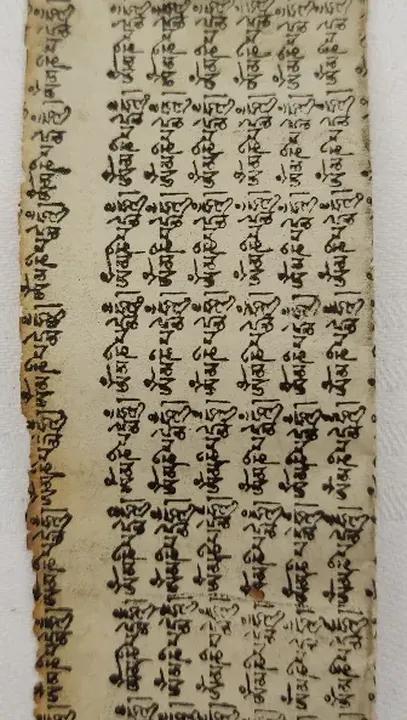 ཨོཾམཎིཔདྨེཧཱུྃ།ཨོཾམཎིཔདྨེཧཱུྃ།ཨོཾམཎིཔདྨེཧཱུྃ།ཨོཾམཎིཔདྨེཧཱུྃ།ཨོཾམཎིཔདྨེཧཱུྃ།ཨོཾམཎིཔདྨེཧཱུྃ།ཨོཾམཎིཔདྨེ
ཨོཾམཎིཔདྨེཧཱུྃ།ཨོཾམཎིཔདྨེཧཱུྃ།ཨོཾམཎིཔདྨེཧཱུྃ།ཨོཾམཎིཔདྨེཧཱུྃ།ཨོཾམཎིཔདྨེཧཱུྃ།ཨོཾམཎིཔདྨེཧཱུྃ།ཨོཾམཎིཔདྨེཧཱུྃ
ཨོཾམཎིཔདྨེཧཱུྃ།ཨོཾམཎིཔདྨེཧཱུྃ།ཨོཾམཎིཔདྨེཧཱུྃ།ཨོཾམཎིཔདྨེཧཱུྃ།ཨོཾམཎིཔདྨེཧཱུྃ།ཨོཾམཎིཔདྨེཧཱུྃ།ཨོཾམཎིཔདྨེཧཱུྃ
ཨོཾམཎིཔདྨེཧཱུྃ།ཨོཾམཎིཔདྨེཧཱུྃ།ཨོཾམཎིཔདྨེཧཱུྃ།ཨོཾམཎིཔདྨེཧཱུྃ།ཨོཾམཎིཔདྨེཧཱུྃ།ཨོཾམཎིཔདྨེཧཱུྃ།ཨོཾམཎིཔདྨེཧཱུྃ
ཨོཾམཎིཔདྨེཧཱུྃ།ཨོཾམཎིཔདྨེཧཱུྃ།ཨོཾམཎིཔདྨེཧཱུྃ།ཨོཾམཎིཔདྨེཧཱུྃ།ཨོཾམཎིཔདྨེཧཱུྃ།ཨོཾམཎིཔདྨེཧཱུྃ།ཨོཾམཎིཔདྨེཧཱུྃ
ཨོཾམཎིཔདྨེཧཱུྃ།ཨོཾམཎིཔདྨེཧཱུྃ།ཨོཾམཎིཔདྨེཧཱུྃ།ཨོཾམཎིཔདྨེཧཱུྃ།ཨོཾམཎིཔདྨེཧཱུྃ།ཨོཾམཎིཔདྨེཧཱུྃ།ཨོཾམཎིཔདྨེཧཱུྃ
ཨོཾམཎིཔདྨེཧཱུྃ།ཨོཾམཎིཔདྨེཧཱུྃ།ཨོཾམཎིཔདྨེཧཱུྃ།ཨོཾམཎིཔདྨེཧཱུྃ།ཨོཾམཎིཔདྨེཧཱུྃ།ཨོཾམཎིཔདྨེཧཱུྃ།ཨོཾམཎིཔདྨེཧཱུྃ